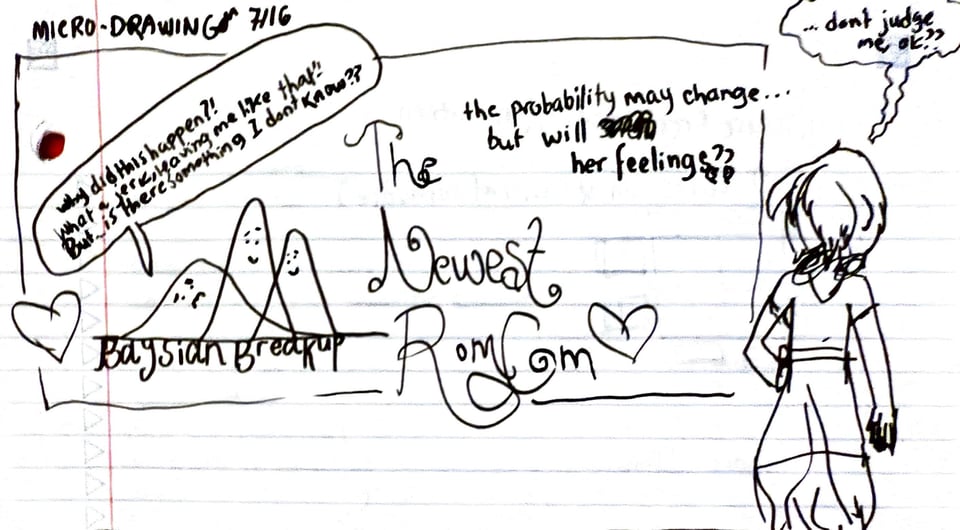 MICRO-DRAWINGS 7/16
... don't judge
me, ok??
Why did this happen?!
What a jerk, leaving me like that!!
But... is there something I don't know??
the probability may change...
but will
her feelings??
The
Newest
RomCom
Baysian Breakup